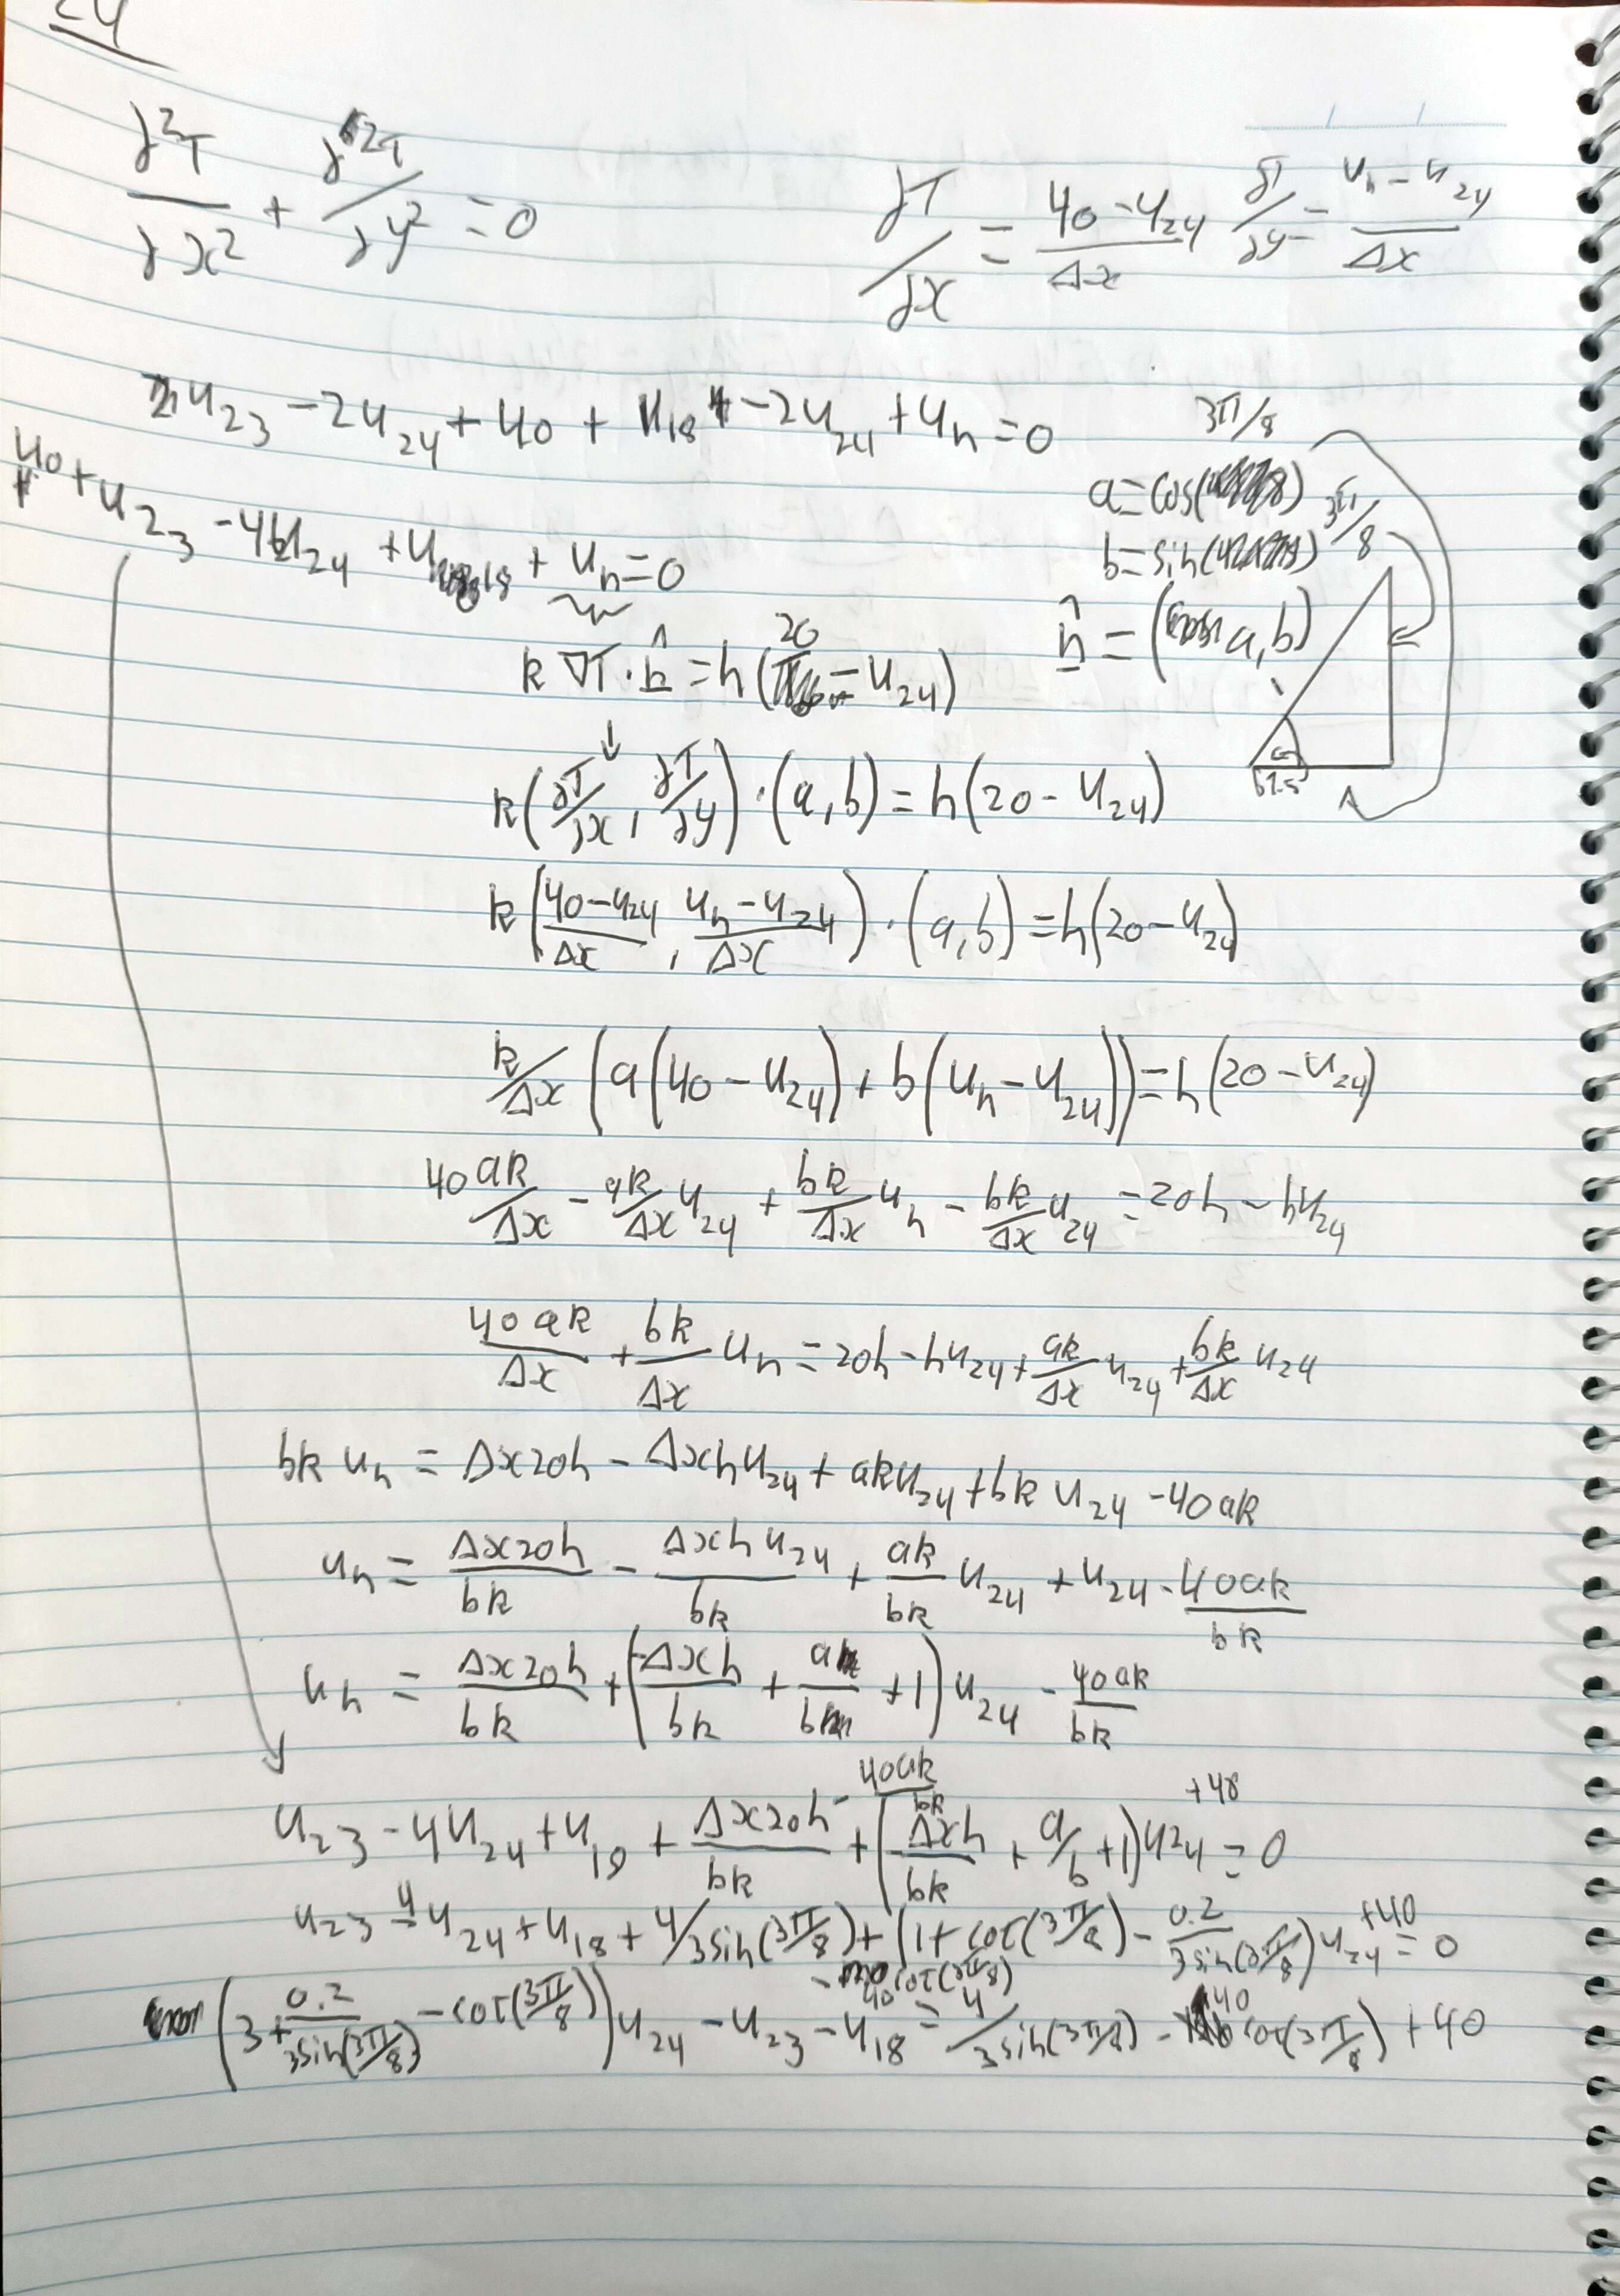 24
∂²T/∂x² + ∂²T/∂y² = 0
∂T/∂x = (40 - u₂₄)/Δx  ∂T/∂y = (uₙ - u₂₄)/Δx
u₂₃ - 2u₂₄ + 40 + u₁₈ - 2u₂₄ + uₙ = 0
40 + u₂₃ - 4u₂₄ + u₁₈ + uₙ = 0
3π/8
a = cos( )
b = sin( ) 3π/8
n̂ = (a, b)
67.5
k ∇T · n̂ = h(20 - u₂₄)
k(∂T/∂x, ∂T/∂y) · (a, b) = h(20 - u₂₄)
k((40 - u₂₄)/Δx, (uₙ - u₂₄)/Δx) · (a, b) = h(20 - u₂₄)
k/Δx (a(40 - u₂₄) + b(uₙ - u₂₄)) = h(20 - u₂₄)
40ak/Δx - ak/Δx u₂₄ + bk/Δx uₙ - bk/Δx u₂₄ = 20h - hu₂₄
40ak/Δx + bk/Δx uₙ = 20h - hu₂₄ + ak/Δx u₂₄ + bk/Δx u₂₄
bk uₙ = Δx20h - Δxhu₂₄ + aku₂₄ + bk u₂₄ - 40ak
uₙ = Δx20h/bk - Δxhu₂₄/bk + ak/bk u₂₄ + u₂₄ - 40ak/bk
uₙ = Δx20h/bk + (-Δxh/bk + a/b + 1) u₂₄ - 40ak/bk
u₂₃ - 4u₂₄ + u₁₈ + Δx20h/bk - 40ak/bk + (-Δxh/bk + a/b + 1) u₂₄ + 40 = 0
u₂₃ - 4u₂₄ + u₁₈ + 4/3sin(3π/8) + (1 + cot(3π/8) - 0.2/3sin(3π/8)) u₂₄ + 40 = 0
- 40cot(3π/8)
(3 + 0.2/3sin(3π/8) - cot(3π/8)) u₂₄ - u₂₃ - u₁₈ = 4/3sin(3π/8) - 40cot(3π/8) + 40